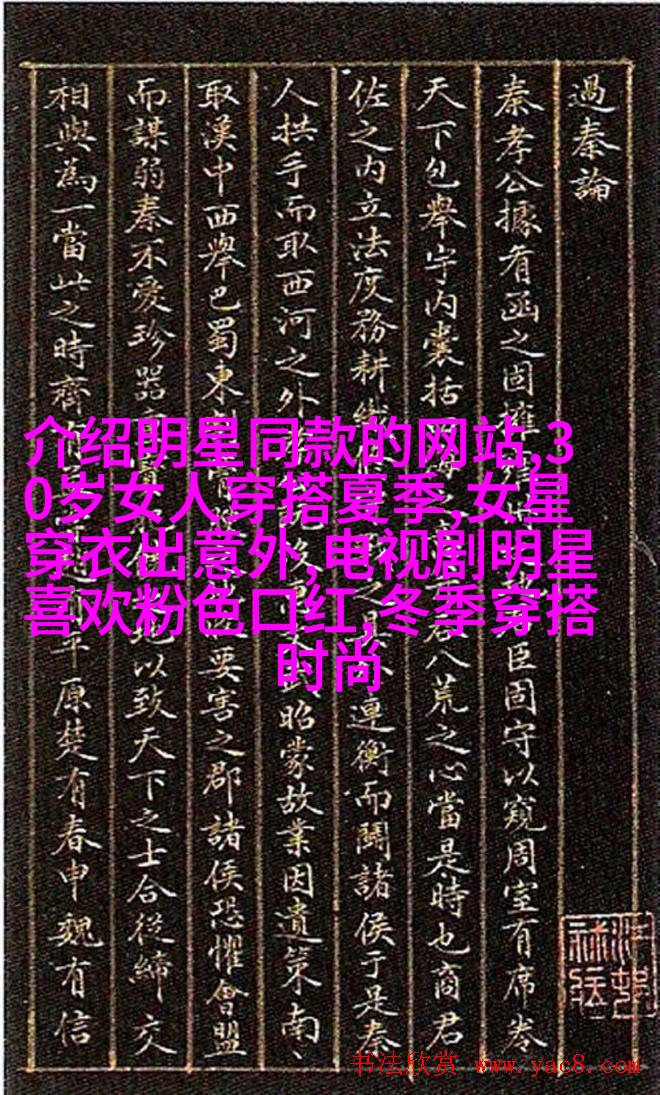 過秦論
秦孝公據肴函之固 臣固守以窺周室有席卷
天下包舉宇內囊括 八荒之心當是時也商君
佐之內立法度務耕織 連衡而鬬諸侯于是秦
人拱手而取西河之外 昭蒙故業因遺策南、
取漢中西舉巴蜀東 要害之郡諸侯恐懼會盟
而謀弱秦不愛珍器 以致天下之士合從締交
相與為一當此之時齊 原楚有春申魏有信
介绍明星同款的网站,3
0岁女人穿搭夏季,女星
穿衣出意外,电视剧明星
喜欢粉色口红,冬季穿搭
时尚
书法欣赏 www.yac8.com